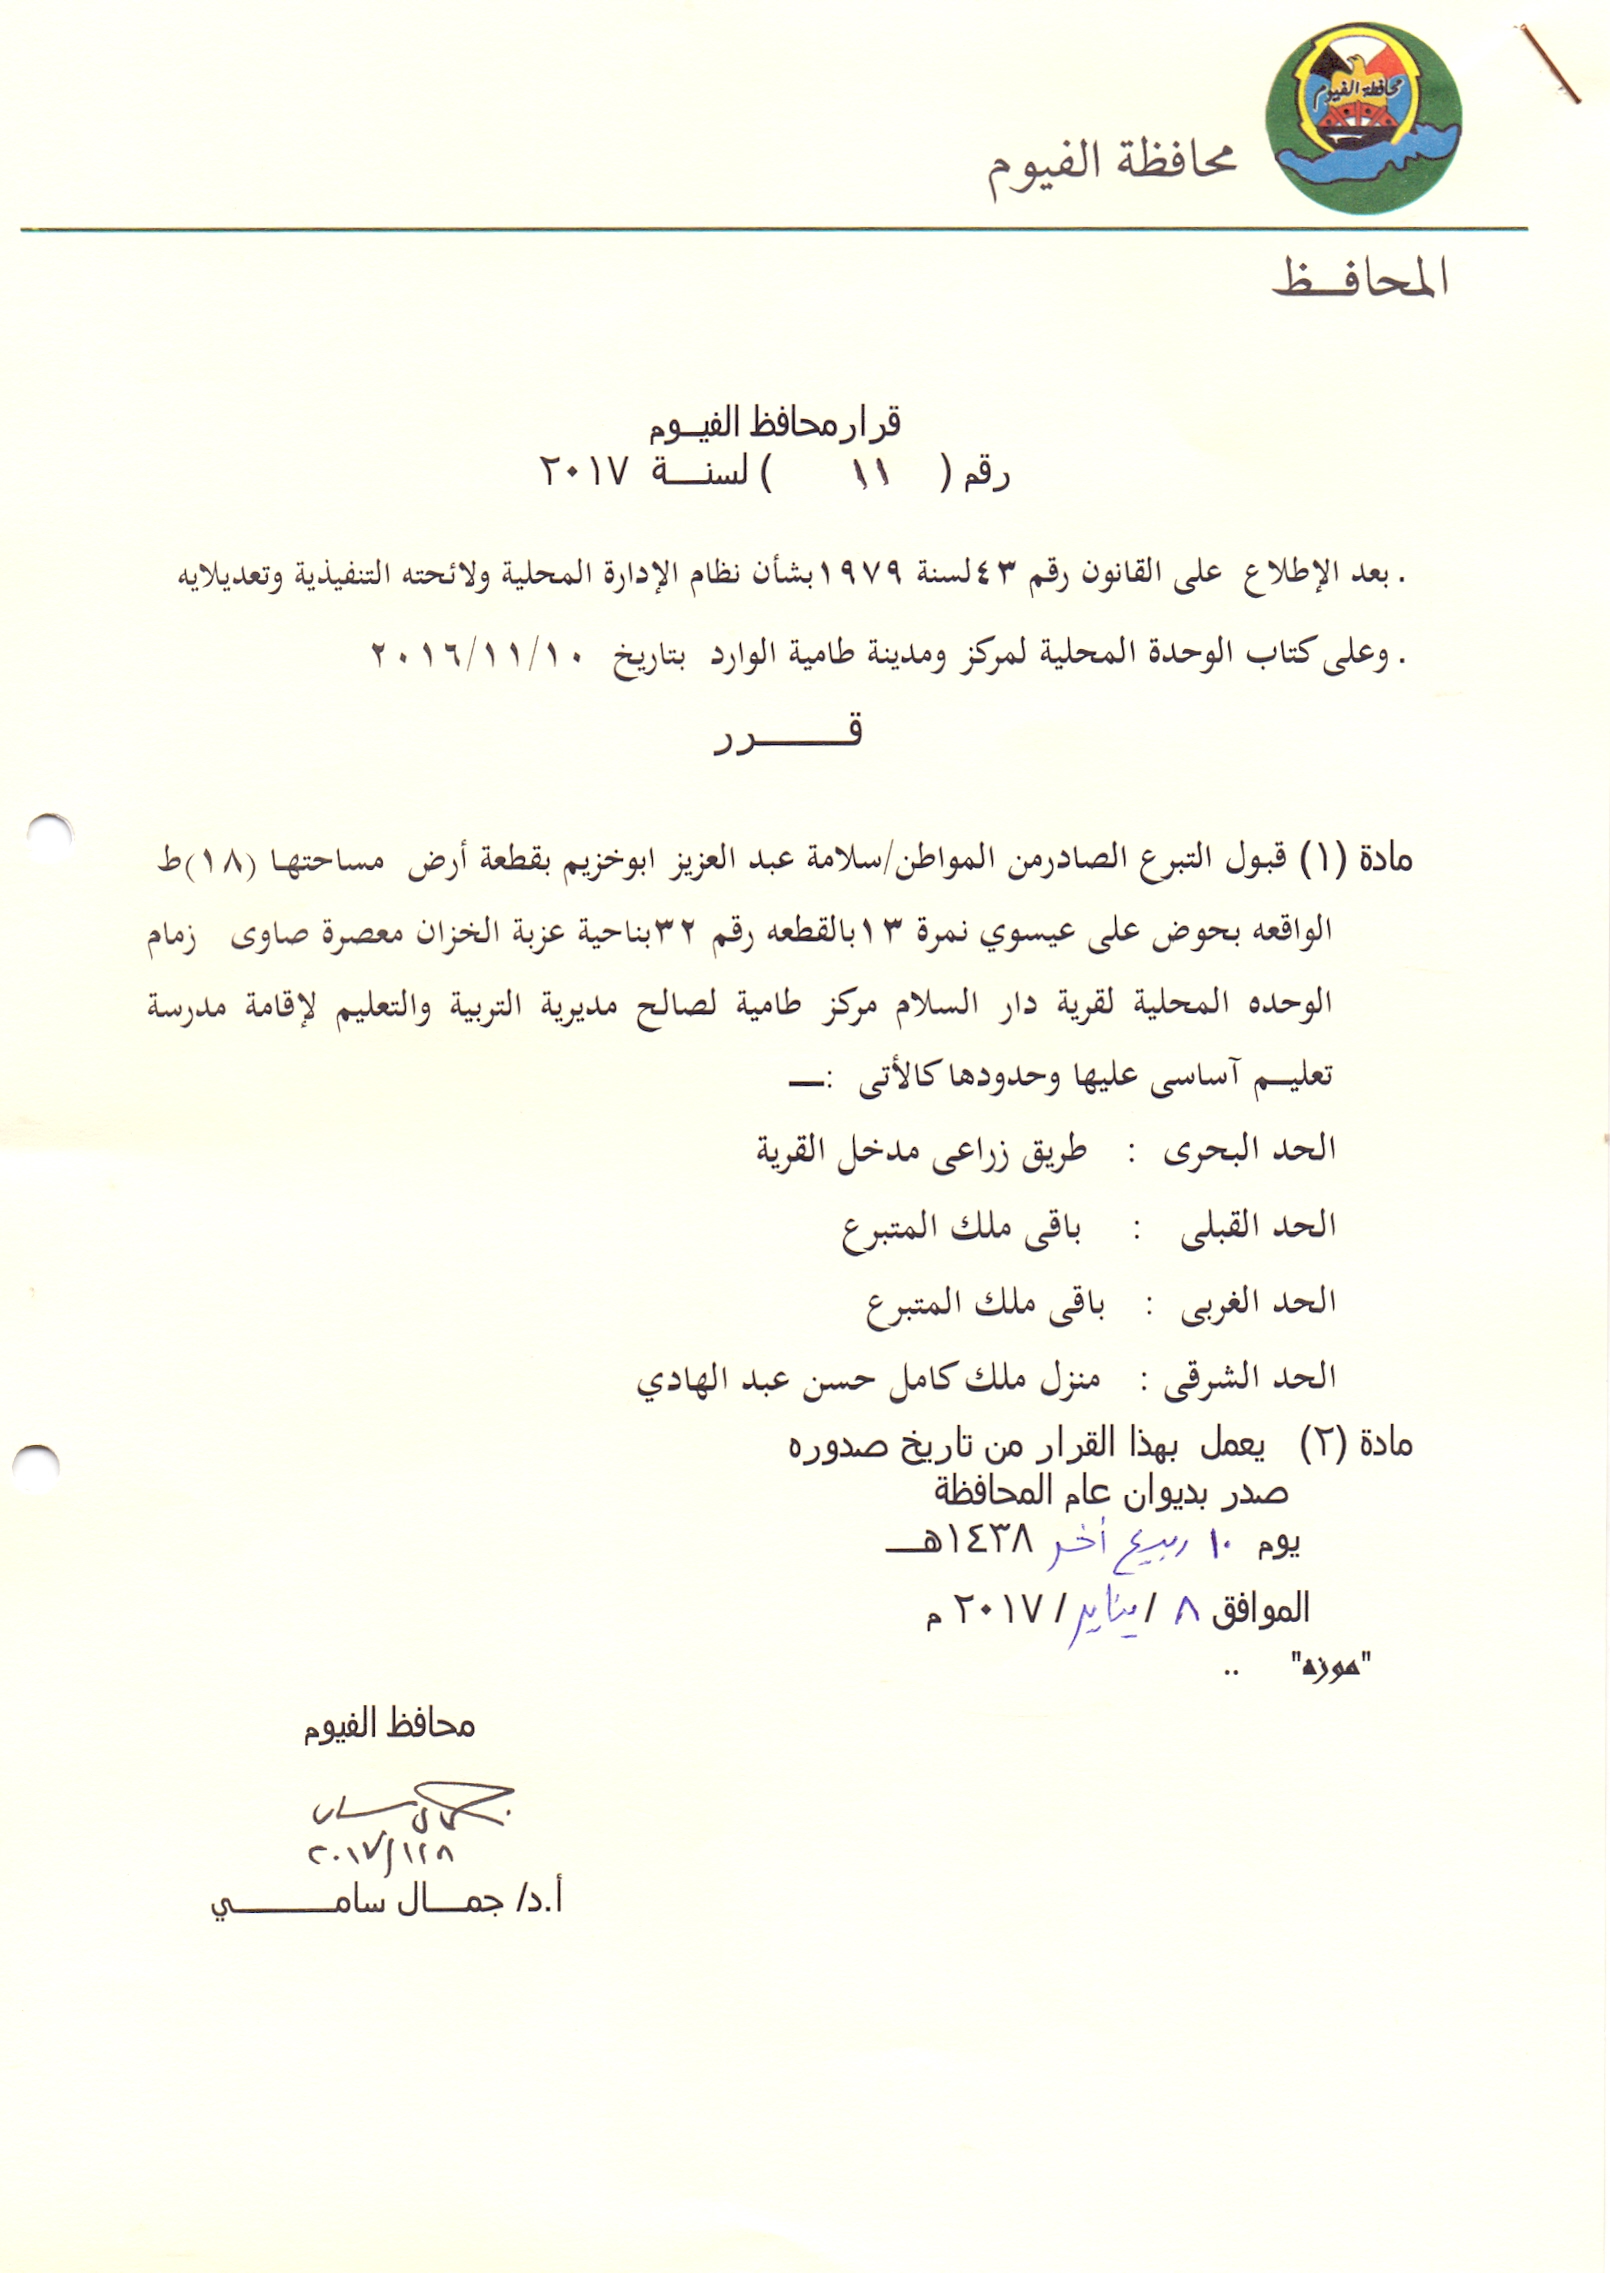 محافظة الفيوم
محافظة الفيوم
المحافــظ
قرار محافظ الفيــوم
رقم ( ١١ ) لسنــــة ٢٠١٧
. بعد الإطلاع على القانون رقم ٤٣ لسنة ١٩٧٩ بشأن نظام الإدارة المحلية ولائحته التنفيذية وتعديلايه
. وعلى كتاب الوحدة المحلية لمركز ومدينة طامية الوارد بتاريخ ٢٠١٦/١١/١٠
قــــــــرر
مادة (١) قبول التبرع الصادرمن المواطن/سلامة عبد العزيز ابوخزيم بقطعة أرض مساحتها (١٨)ط
الواقعه بحوض على عيسوي نمرة ١٣ بالقطعه رقم ٣٢ بناحية عزبة الخزان معصرة صاوى زمام
الوحده المحلية لقرية دار السلام مركز طامية لصالح مديرية التربية والتعليم لإقامة مدرسة
تعليـــم آساسى عليها وحدودها كالأتى :ــ
الحد البحرى : طريق زراعى مدخل القرية
الحد القبلى : باقى ملك المتبرع
الحد الغربى : باقى ملك المتبرع
الحد الشرقى : منزل ملك كامل حسن عبد الهادي
مادة (٢) يعمل بهذا القرار من تاريخ صدوره
صدر بديوان عام المحافظة
يوم ١٠ ربيع أخر ١٤٣٨هــــ
الموافق ٨ / يناير / ٢٠١٧ م
"موزه" ..
محافظ الفيوم
جمال سامى
٢٠١٧/١/٨
أ.د/ جمــــال سامــــــــــــي